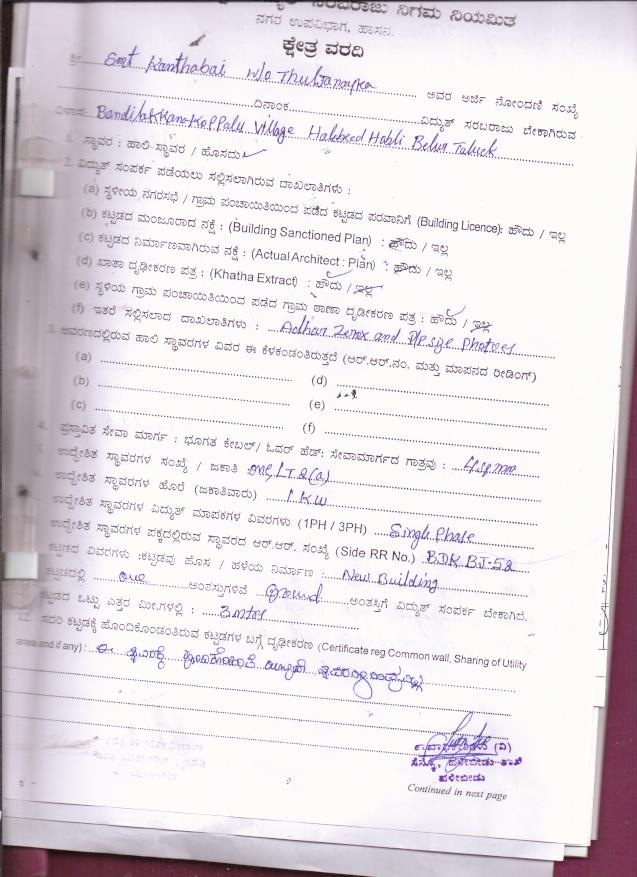 ಸರಬರಾಜು ನಿಗಮ ನಿಯಮಿತ
ನಗರ ಉಪವಿಭಾಗ, ಹಾಸನ.
ಕ್ಷೇತ್ರ ವರದಿ
ಶ್ರೀ Smt Kanthabai W/o ಅವರ ಅರ್ಜಿ ನೋಂದಣಿ ಸಂಖ್ಯೆ
ದಿನಾಂಕ ವಿದ್ಯುತ್ ಸರಬರಾಜು ಬೇಕಾಗಿರುವ
ವಿಳಾಸ: Village Hobli Belur Taluck
1. ಸ್ಥಾವರ : ಹಾಲಿ ಸ್ಥಾವರ / ಹೊಸದು
2. ವಿದ್ಯುತ್ ಸಂಪರ್ಕ ಪಡೆಯಲು ಸಲ್ಲಿಸಲಾಗಿರುವ ದಾಖಲಾತಿಗಳು :
(a) ಸ್ಥಳೀಯ ನಗರಸಭೆ / ಗ್ರಾಮ ಪಂಚಾಯಿತಿಯಿಂದ ಪಡೆದ ಕಟ್ಟಡದ ಪರವಾನಿಗೆ (Building Licence): ಹೌದು / ಇಲ್ಲ
(b) ಕಟ್ಟಡದ ಮಂಜೂರಾದ ನಕ್ಷೆ : (Building Sanctioned Plan) : ಹೌದು / ಇಲ್ಲ
(c) ಕಟ್ಟಡದ ನಿರ್ಮಾಣವಾಗಿರುವ ನಕ್ಷೆ : (Actual Architect : Plan) : ಹೌದು / ಇಲ್ಲ
(d) ಖಾತಾ ದೃಢೀಕರಣ ಪತ್ರ : (Khatha Extract) : ಹೌದು / ಇಲ್ಲ
(e) ಸ್ಥಳಿಯ ಗ್ರಾಮ ಪಂಚಾಯಿತಿಯಿಂದ ಪಡೆದ ಗ್ರಾಮ ಠಾಣಾ ದೃಢೀಕರಣ ಪತ್ರ : ಹೌದು / ಇಲ್ಲ
(f) ಇತರೆ ಸಲ್ಲಿಸಲಾದ ದಾಖಲಾತಿಗಳು : Adhar Zerox and size Photoes
3. ಆವರಣದಲ್ಲಿರುವ ಹಾಲಿ ಸ್ಥಾವರಗಳ ವಿವರ ಈ ಕೆಳಕಂಡಂತಿರುತ್ತದೆ (ಆರ್.ಆರ್.ನಂ. ಮತ್ತು ಮಾಪನದ ರೀಡಿಂಗ್)
(a) (d)
(b) (e)
(c) (f)
4. ಪ್ರಸ್ತಾವಿತ ಸೇವಾ ಮಾರ್ಗ : ಭೂಗತ ಕೇಬಲ್/ ಓವರ್ ಹೆಡ್: ಸೇವಾಮಾರ್ಗದ ಗಾತ್ರವು : 4sqmm
ಉದ್ದೇಶಿತ ಸ್ಥಾವರಗಳ ಸಂಖ್ಯೆ / ಜಕಾತಿ one, LT 2(a)
ಉದ್ದೇಶಿತ ಸ್ಥಾವರಗಳ ಹೊರೆ (ಜಕಾತಿವಾರು) 1 KW
ಉದ್ದೇಶಿತ ಸ್ಥಾವರಗಳ ವಿದ್ಯುತ್ ಮಾಪಕಗಳ ವಿವರಗಳು (1PH / 3PH) Single Phase
ಉದ್ದೇಶಿತ ಸ್ಥಾವರಗಳ ಪಕ್ಕದಲ್ಲಿರುವ ಸ್ಥಾವರದ ಆರ್.ಆರ್. ಸಂಖ್ಯೆ (Side RR No.) BDK BJ-52
ಕಟ್ಟಡದ ವಿವರಗಳು :ಕಟ್ಟಡವು ಹೊಸ / ಹಳೆಯ ನಿರ್ಮಾಣ : New Building
ಕಟ್ಟಡದಲ್ಲಿ one ಅಂತಸ್ತುಗಳಿವೆ Ground ಅಂತಸ್ತಿಗೆ ವಿದ್ಯುತ್ ಸಂಪರ್ಕ ಬೇಕಾಗಿದೆ.
ಕಟ್ಟಡದ ಒಟ್ಟು ಎತ್ತರ ಮೀ.ಗಳಲ್ಲಿ : 3
12. ಸದರಿ ಕಟ್ಟಡಕ್ಕೆ ಹೊಂದಿಕೊಂಡಂತಿರುವ ಕಟ್ಟಡಗಳ ಬಗ್ಗೆ ದೃಢೀಕರಣ (Certificate reg Common wall, Sharing of Utility
area and if any) : ಈ
ಹಳೇಬೀಡು ಶಾಖೆ
ಹಳೇಬೀಡು
Continued in next page